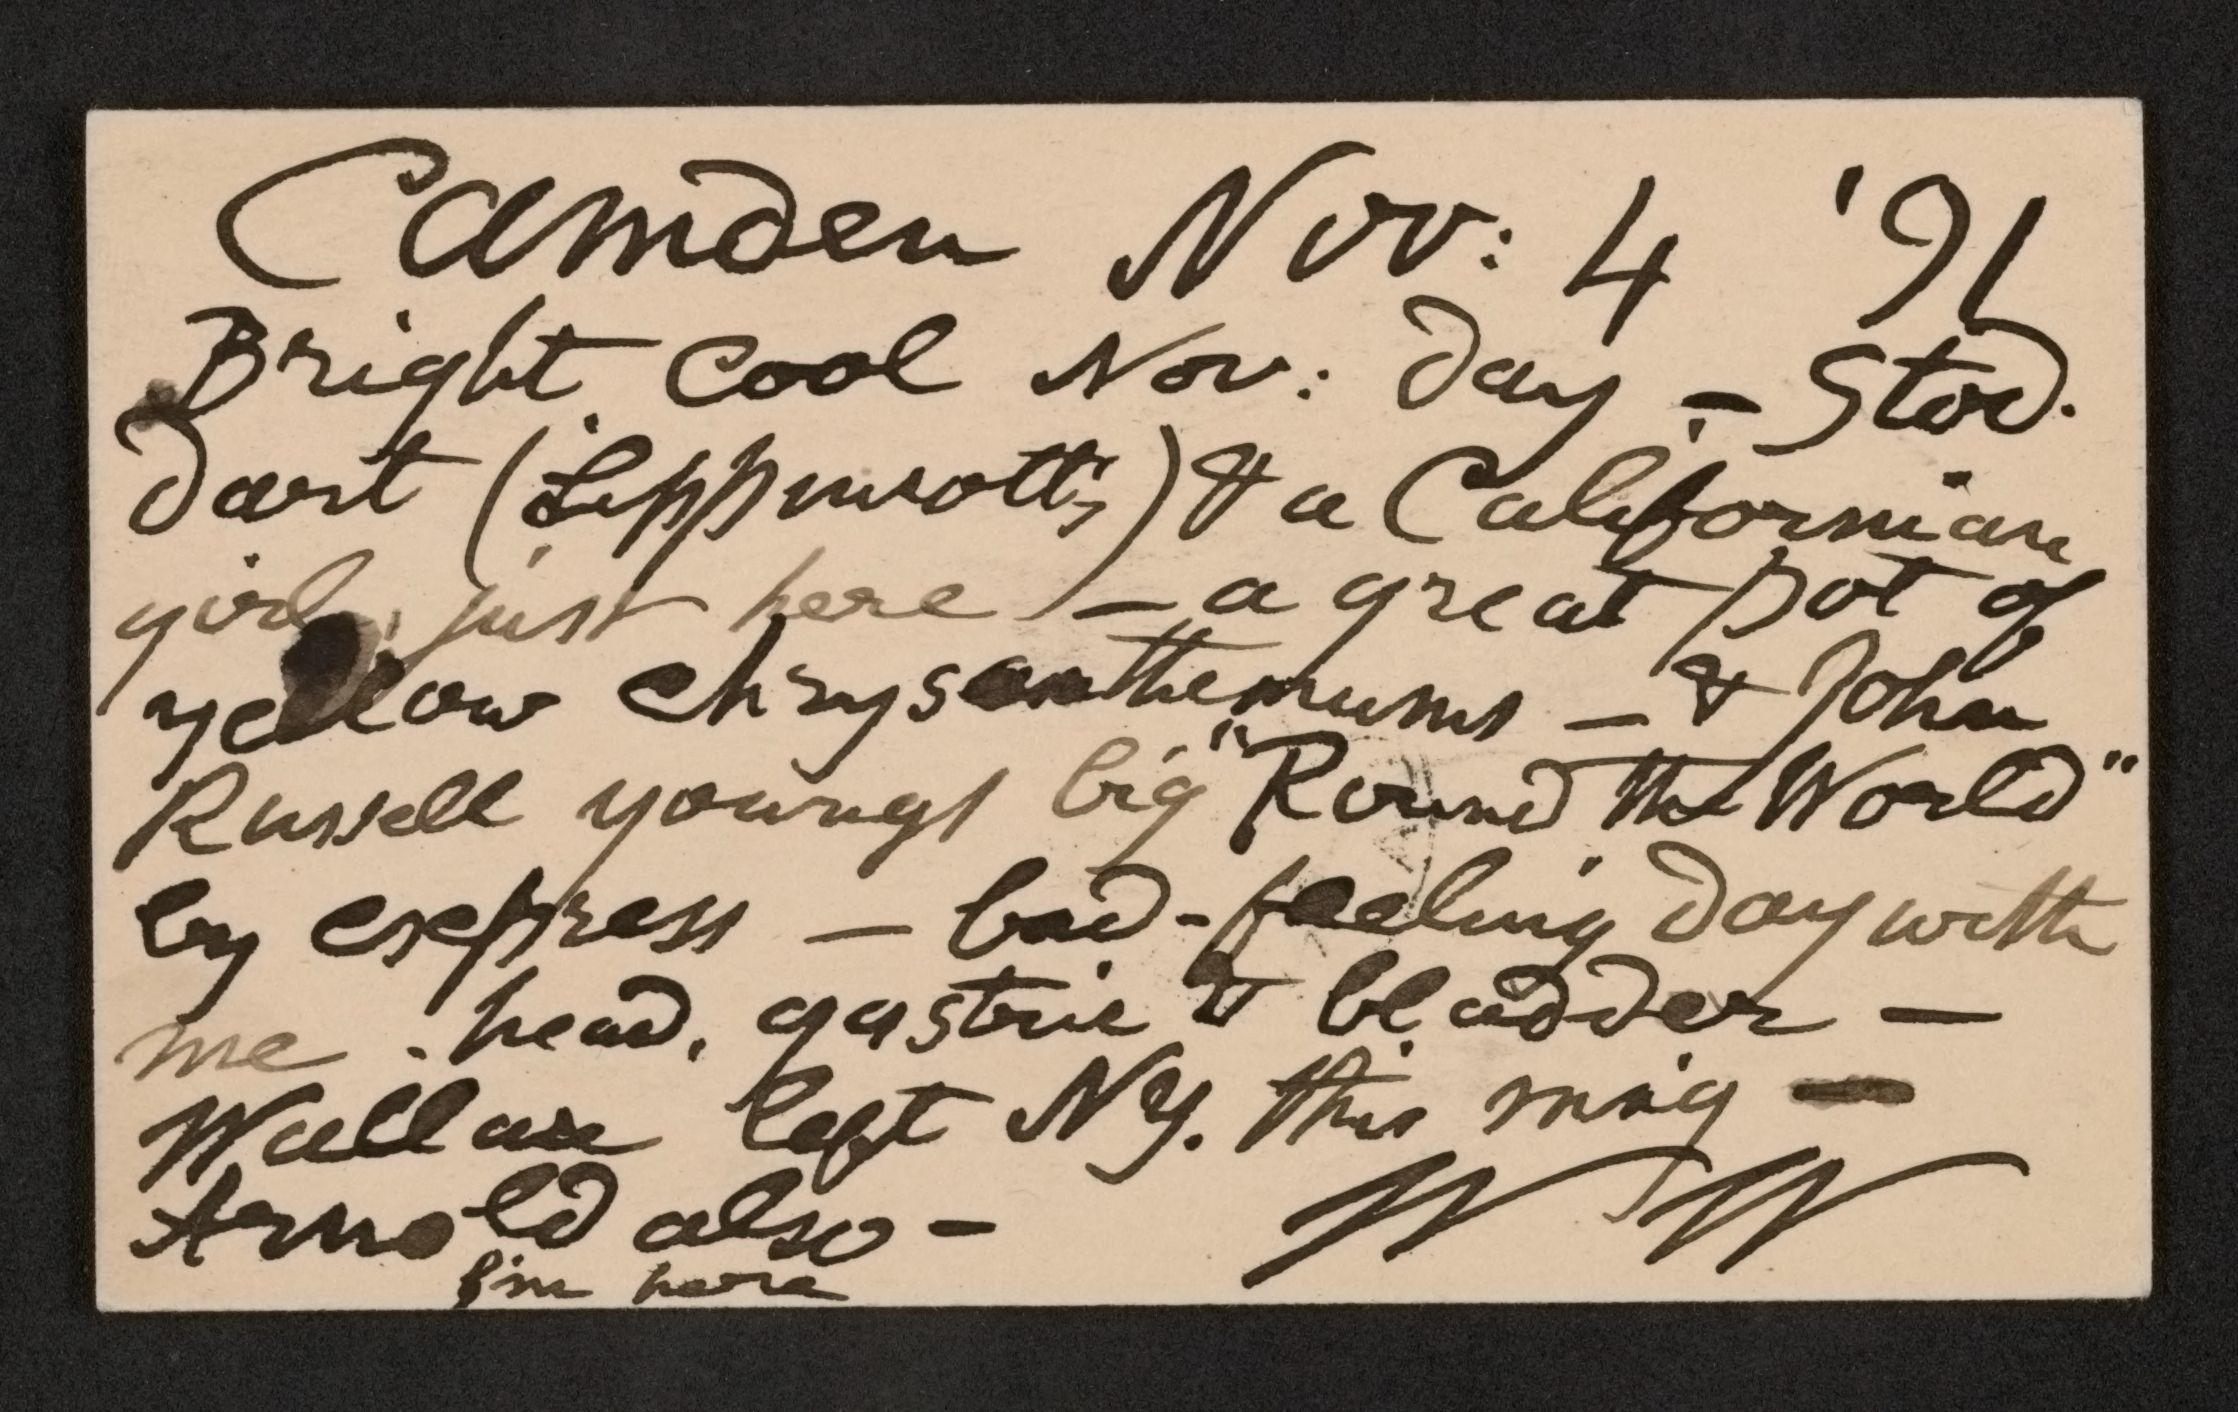 Camden Nov: 4 '91
Bright cool Nov: day – Stod.
dart (Lippincott's) & a Californian
girl, just here – a great pot of
yellow chrysanthemums – & John
Russell Youngs big "Round the World"
by express – bad-feeling day with
me – head, gastric & bladder –
Wallace left NY. this mn'g –
Arnold also – W W
fm here